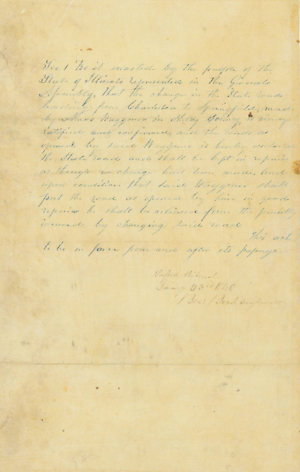 Sec 1 Be it enacted by the people of the
State of Illinois represented in the General
Assembly, that the change in the State road
leading from Charleston to Springfield, made
by Waggoner in Shelby County is hereby
ratified and confirmed and the road as
opened by said Waggoner is hereby declared
the State road and shall be kept in repair
as though no change had been made, but
upon condition that said Waggoner shall
put the road as opened by him in good
repair he shall be relieved from the penalty
incured by changing said road
This act
to be in force from and after its passage